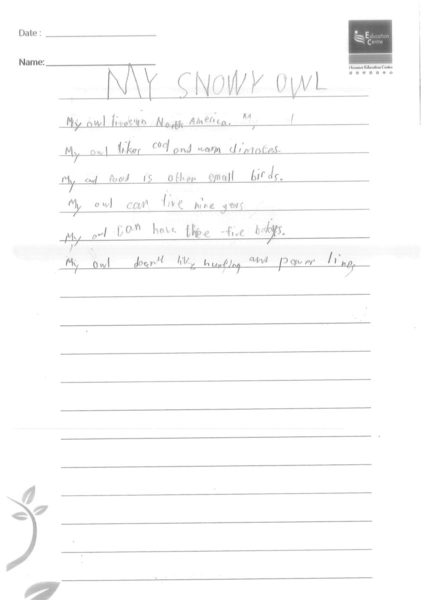 Date :
Education
Centre
Name:
MY SNOWY OWL
My owl lives in North America. My
My owl likes cold and warm climates.
My owl food is other small birds.
My owl can live nine years
My owl can have three-five babys.
My owl doesn't like hunting and power lines